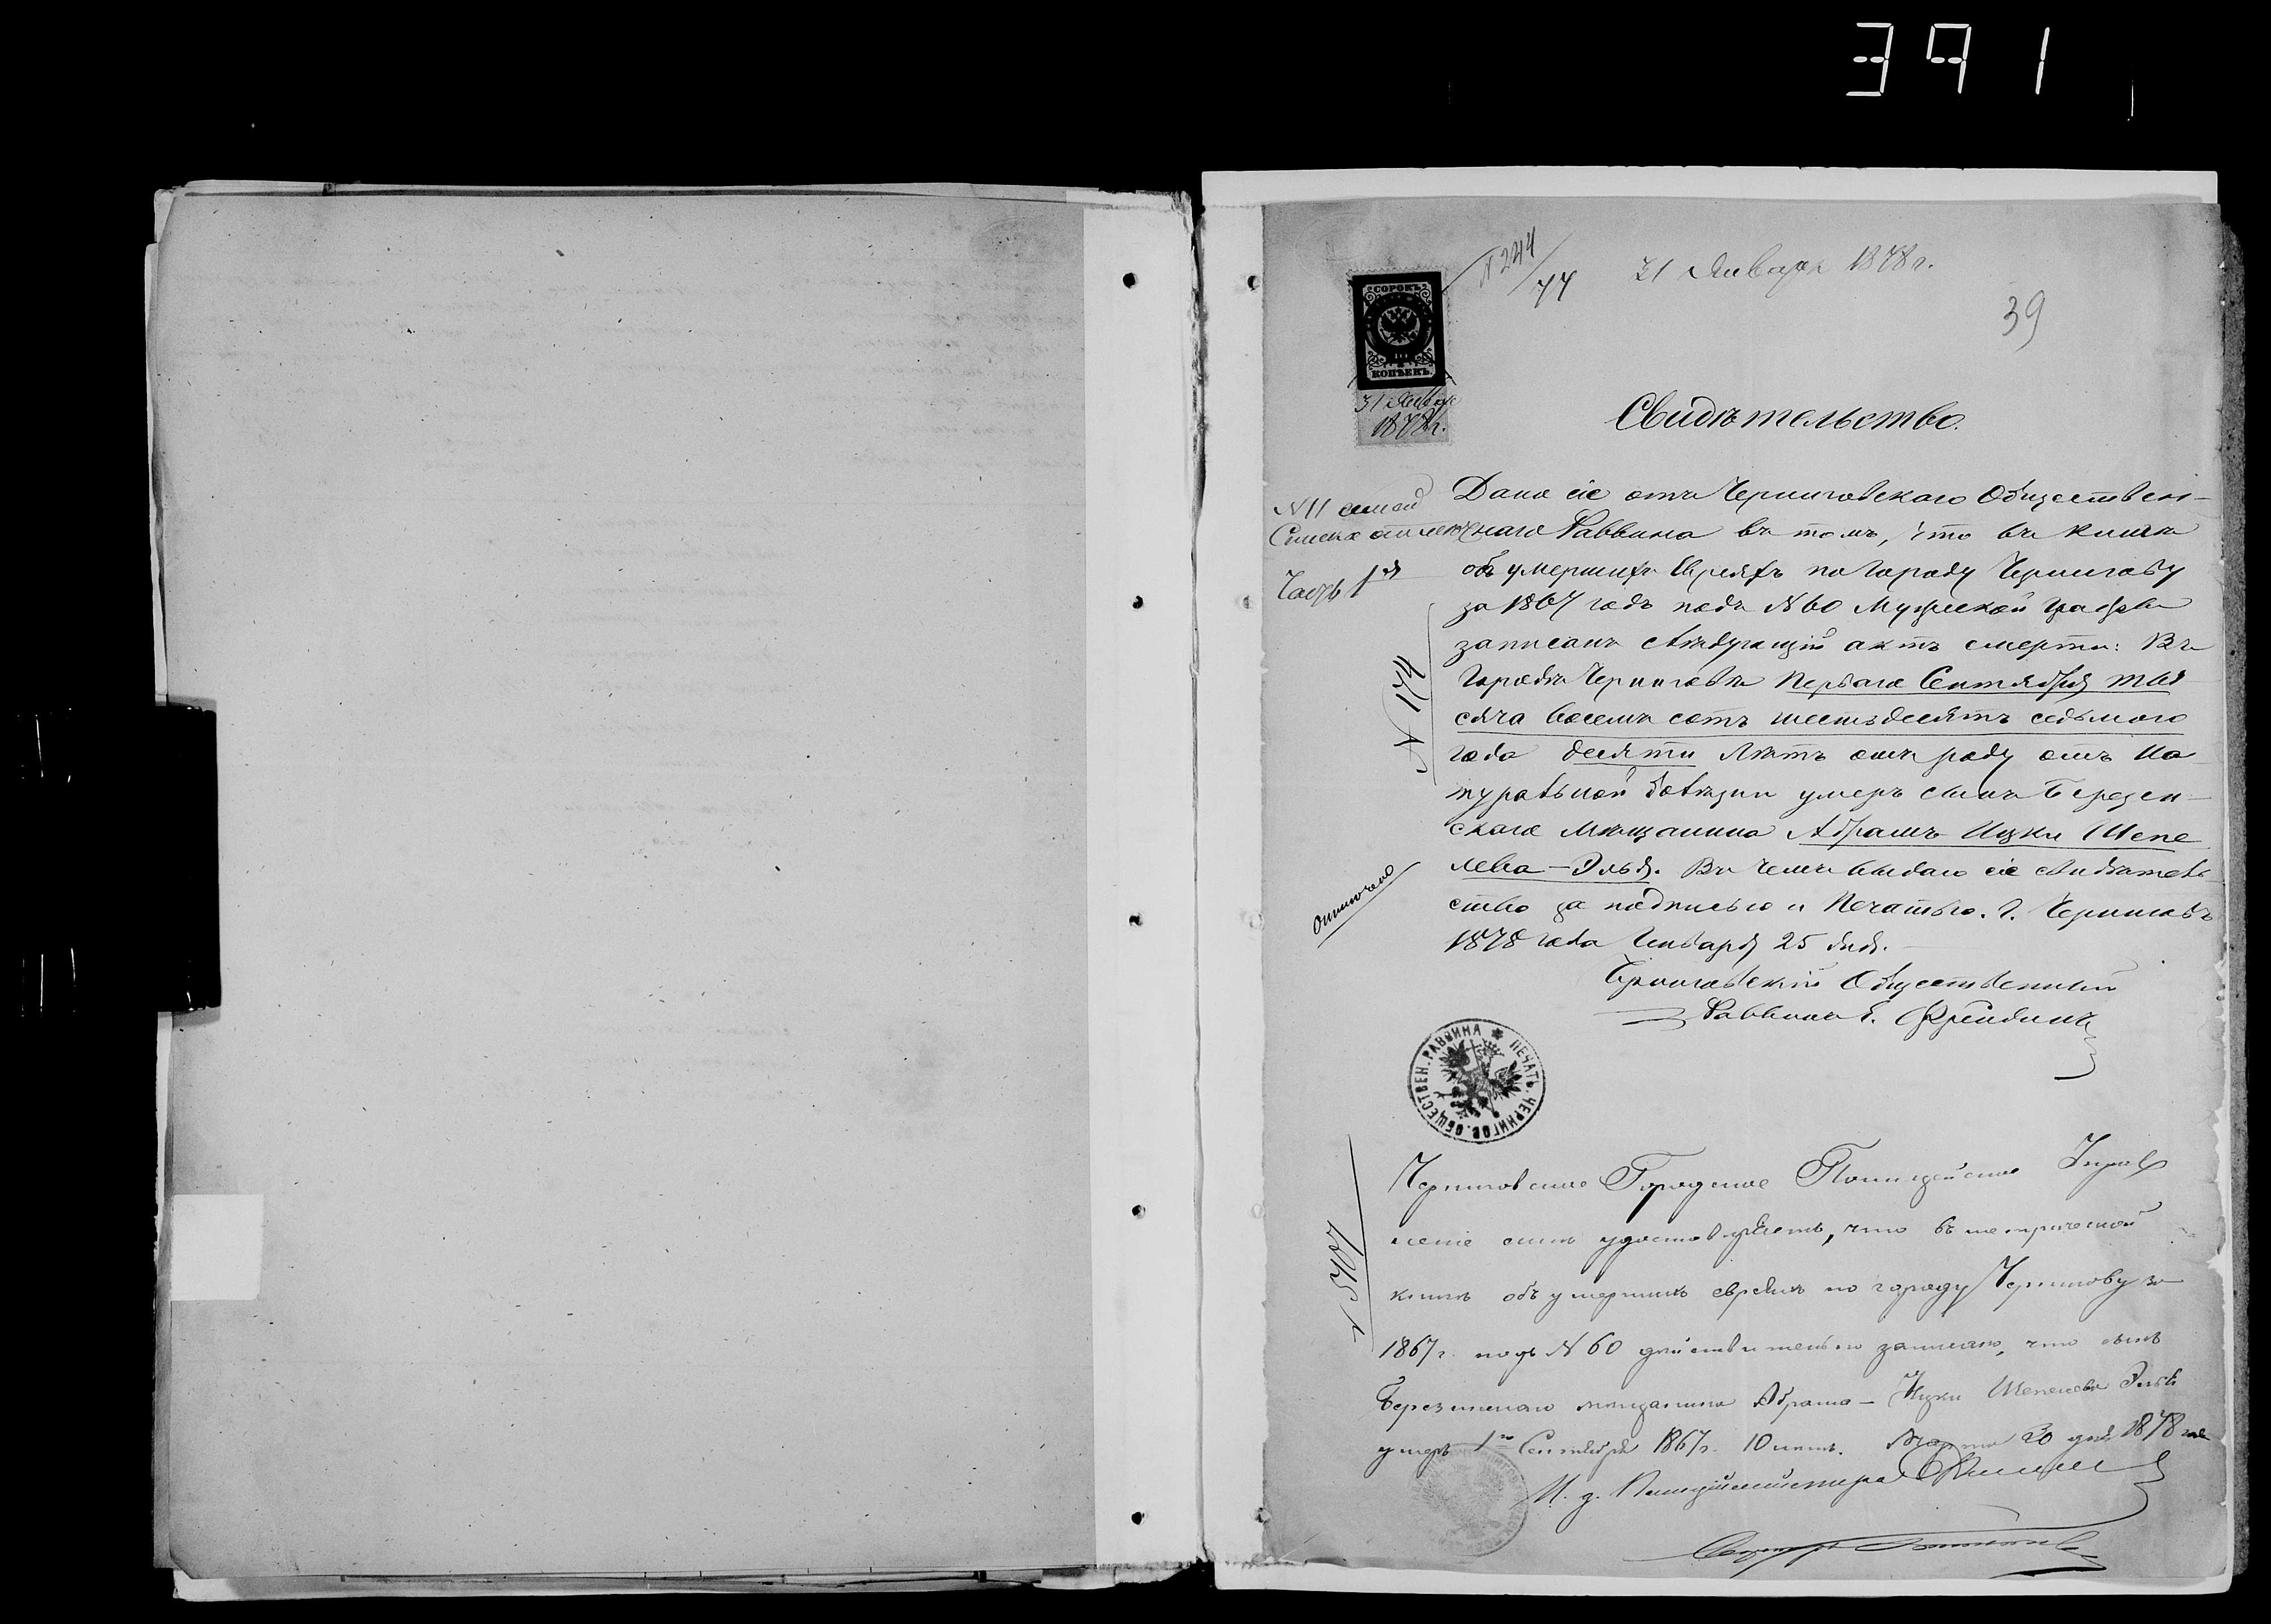 391
N 244/77
31 Января 1878 г.
39
СОРОКЪ
КОПѢЕКЪ.
31 Января
1878 г.
Свидѣтельство.
N 11
Списка
Часть 1я
Дано сіе отъ Черниговскаго Обществен-
наго Раввина въ томъ, что въ книгѣ
объ умершихъ Евреяхъ по Городу Чернигову
за 1867 годъ подъ N 60 Мужеской графы
записанъ слѣдующій актъ смерти: Въ
Городѣ Черниговѣ Перваго Сентября тыся
сяча восемь сотъ шестьдесятъ седьмого
года десяти лѣтъ отъ роду отъ На
туральной болѣзни умеръ сынъ Березин-
скаго Мѣщанина Абрамъ Ицки Шепе
лева-Элья. Въ чемъ выдано сіе свидѣтель-
ство за подписью и Печатью. Г. Черниговъ
1878 года Генваря 25 дня.
N 174
Черниговскій Общественный
Раввинъ Фрейдинъ
ПЕЧАТЬ ЧЕРНИГОВ. ОБЩЕСТВЕН. РАВВИНА
Черниговское Городское Полицейское Управ
леніе симъ удостовѣряетъ, что въ метрической
книгѣ объ умершихъ евреяхъ по городу Чернигову за
1867 г. подъ N 60 дѣйствительно записано, что сынъ
Березинскаго мѣщанина Абрама-Ицки Шепелева Элья
умеръ 1го Сентября 1867 г. 10 лѣтъ. Марта 20 дня 1878 года
N 5707
И. д. Полиціймейстера
Секретарь